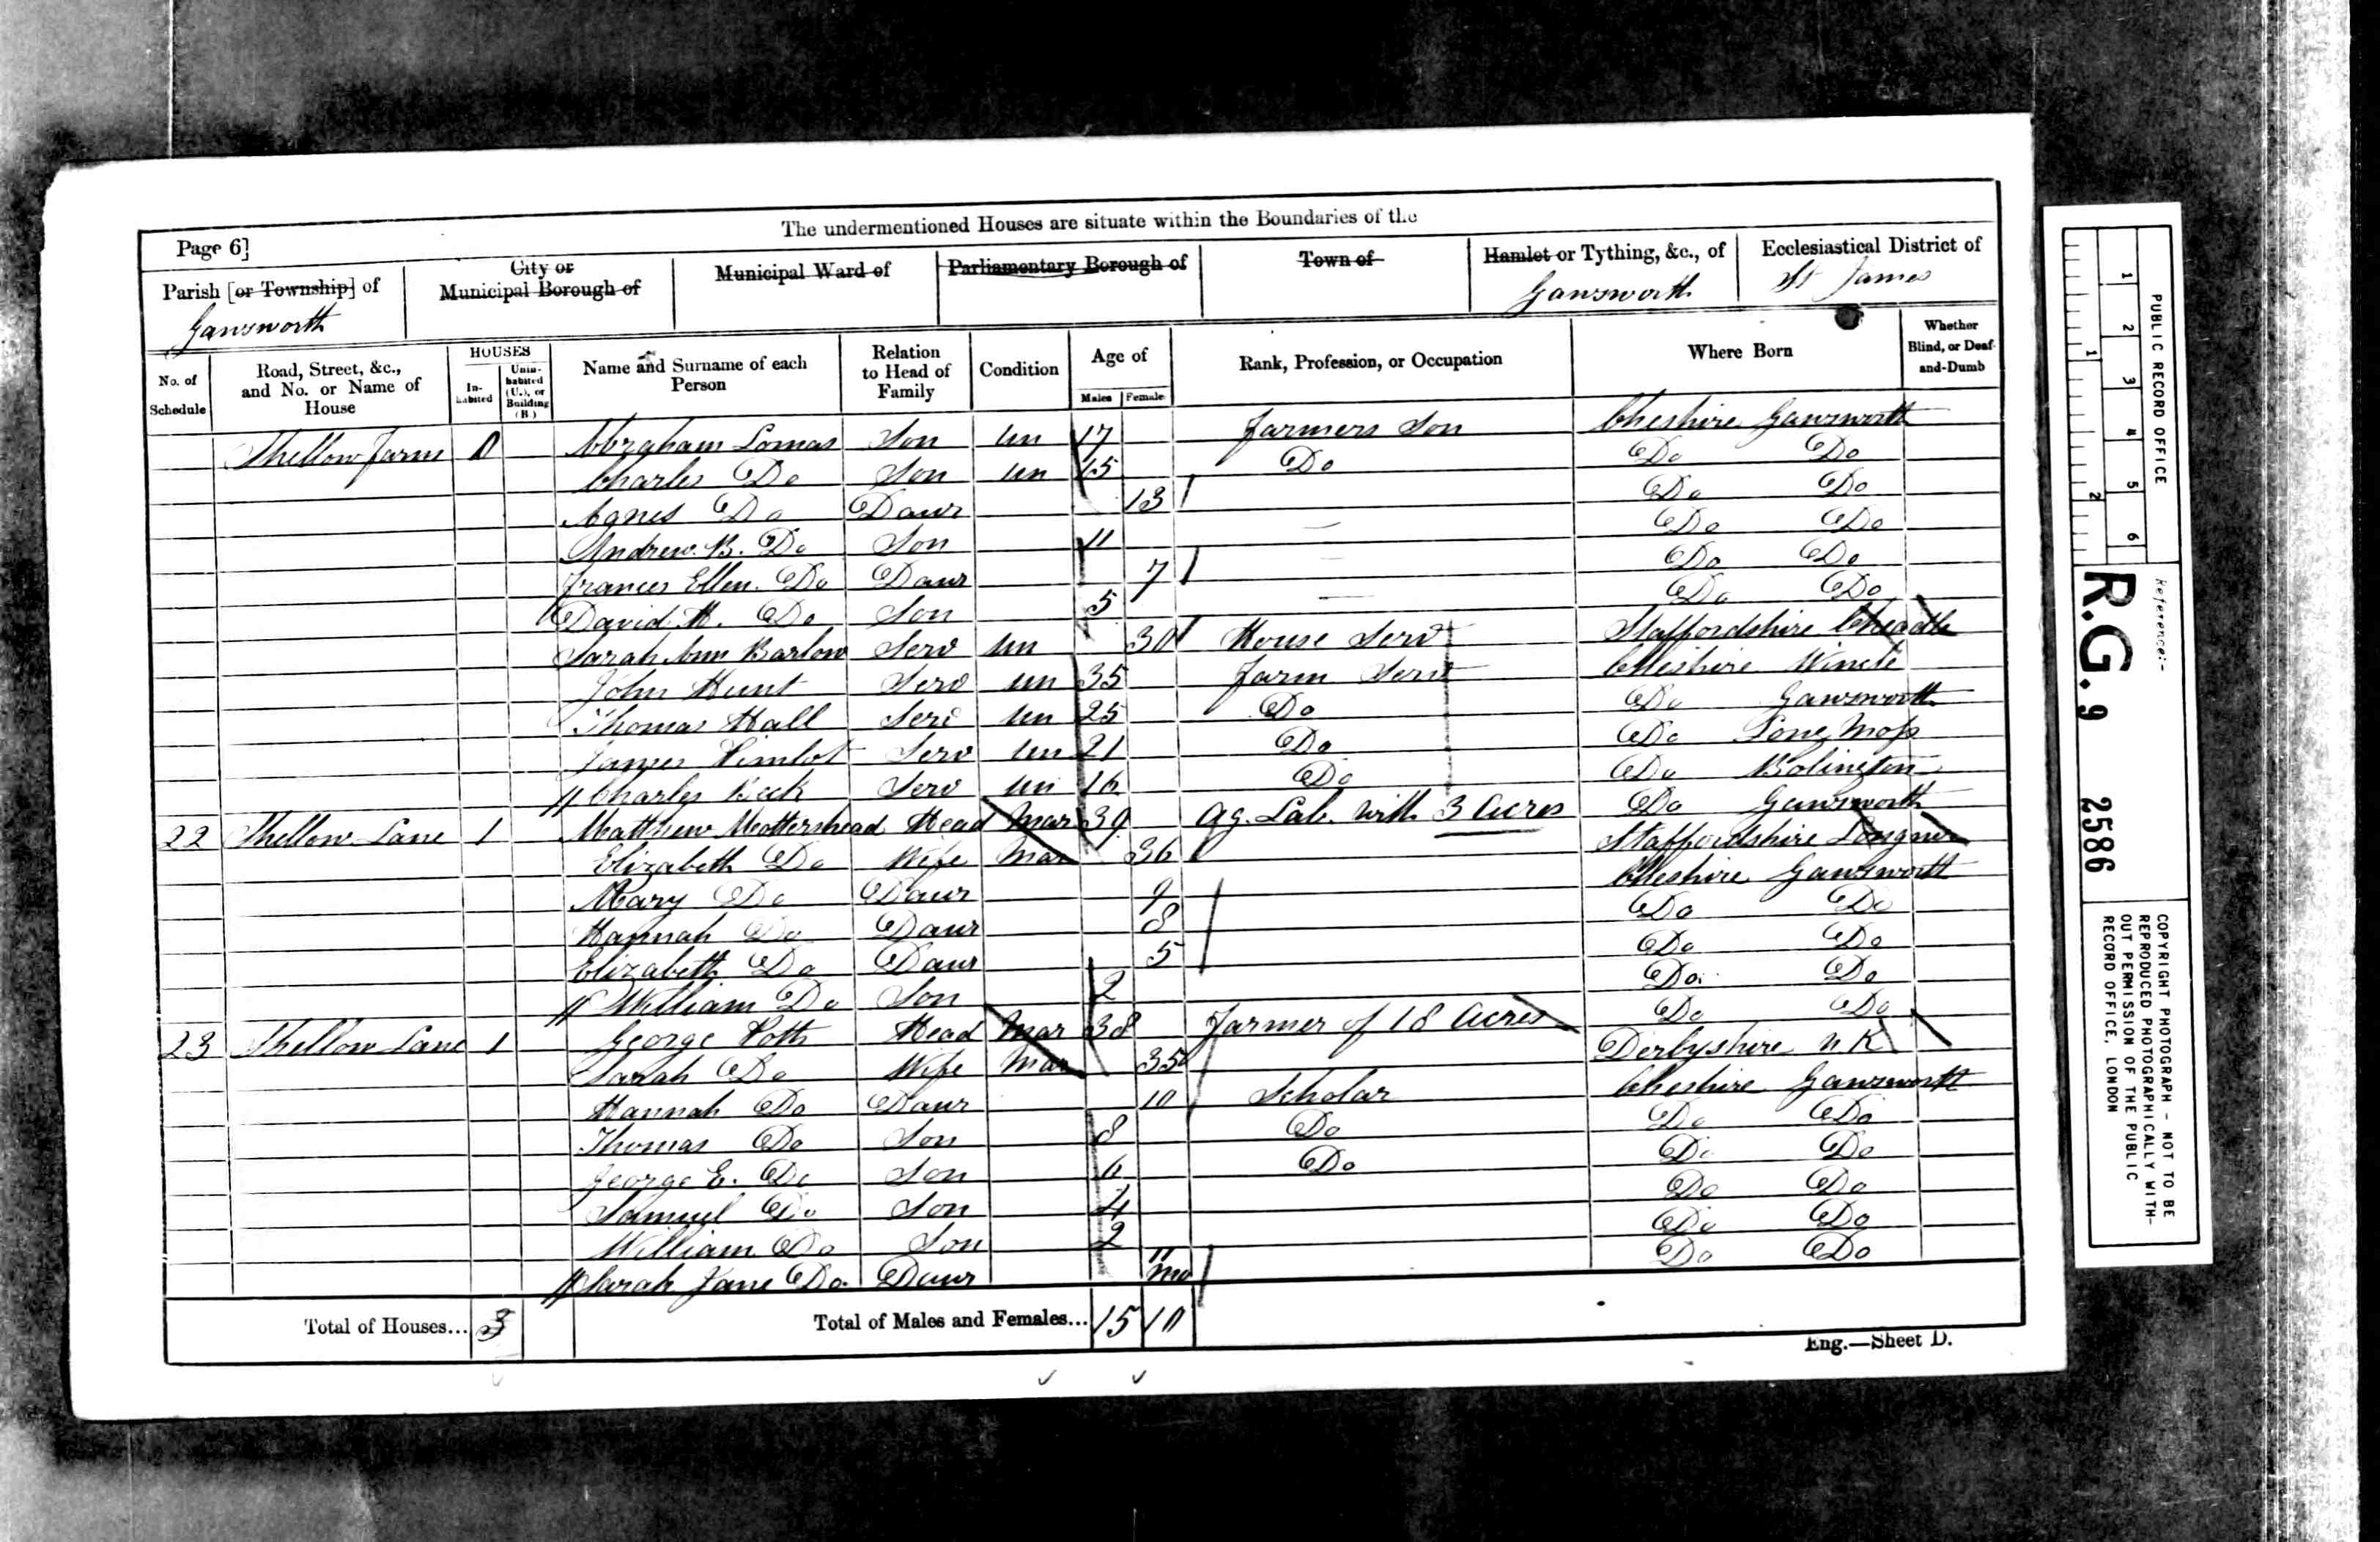 The undermentioned Houses are situate within the Boundaries of the
Page 6]
Parish [or Township] of
Gawsworth
City or
Municipal Borough of
Municipal Ward of
Parliamentary Borough of
Town of
Hamlet or Tything, &c., of
Gawsworth
Ecclesiastical District of
St James
No. of Schedule
Road, Street, &c., and No. or Name of House
HOUSES
In-habited
Unin-habited (U.), or Building (B.)
Name and Surname of each Person
Relation to Head of Family
Condition
Age of
Males
Females
Rank, Profession, or Occupation
Where Born
Whether Blind, or Deaf-and-Dumb
Shellow Farm 0 Abraham Lomas Son Un 17 Farmers Son Cheshire Gawsworth
Charles Do Son Un 15 Do Do Do
Agnes Do Daur 13 Do Do
Andrew B. Do Son 11 — Do Do
Frances Ellen Do Daur 7 — Do Do
David H. Do Son 5 — Do Do
Sarah Ann Barlow Serv Un 30 House Serv Staffordshire Cheadle
John Hunt Serv Un 35 Farm Serv Cheshire Wincle
Thomas Hall Serv Un 25 Do Do Gawsworth
James Serv Un 21 Do Do Moss
Charles Serv Un 16 Do Do Bolington
22 Shellow Lane 1 Matthew Mottershead Head Mar 39 Ag. Lab. with 3 Acres Do Gawsworth
Elizabeth Do Wife Mar 36 Staffordshire Longnor
Mary Do Daur 9 Cheshire Gawsworth
Hannah Do Daur 8 Do Do
Elizabeth Do Daur 5 Do Do
William Do Son 2 Do Do
23 Shellow Lane 1 George Potts Head Mar 38 Farmer of 18 Acres Do Do
Sarah Do Wife Mar 35 Derbyshire N.K
Hannah Do Daur 10 Scholar Cheshire Gawsworth
Thomas Do Son 8 Do Do Do
George E. Do Son 6 Do Do Do
Samuel Do Son 4 Do Do
William Do Son 2 Do Do
Sarah Jane Do Daur 11 mo Do Do
Total of Houses... 3
Total of Males and Females... 15 10
Eng.—Sheet D.
PUBLIC RECORD OFFICE
1 2 3 4 5 6
1 2
Reference:-
R.G. 9 2586
COPYRIGHT PHOTOGRAPH - NOT TO BE
REPRODUCED PHOTOGRAPHICALLY WITH-
OUT PERMISSION OF THE PUBLIC
RECORD OFFICE, LONDON